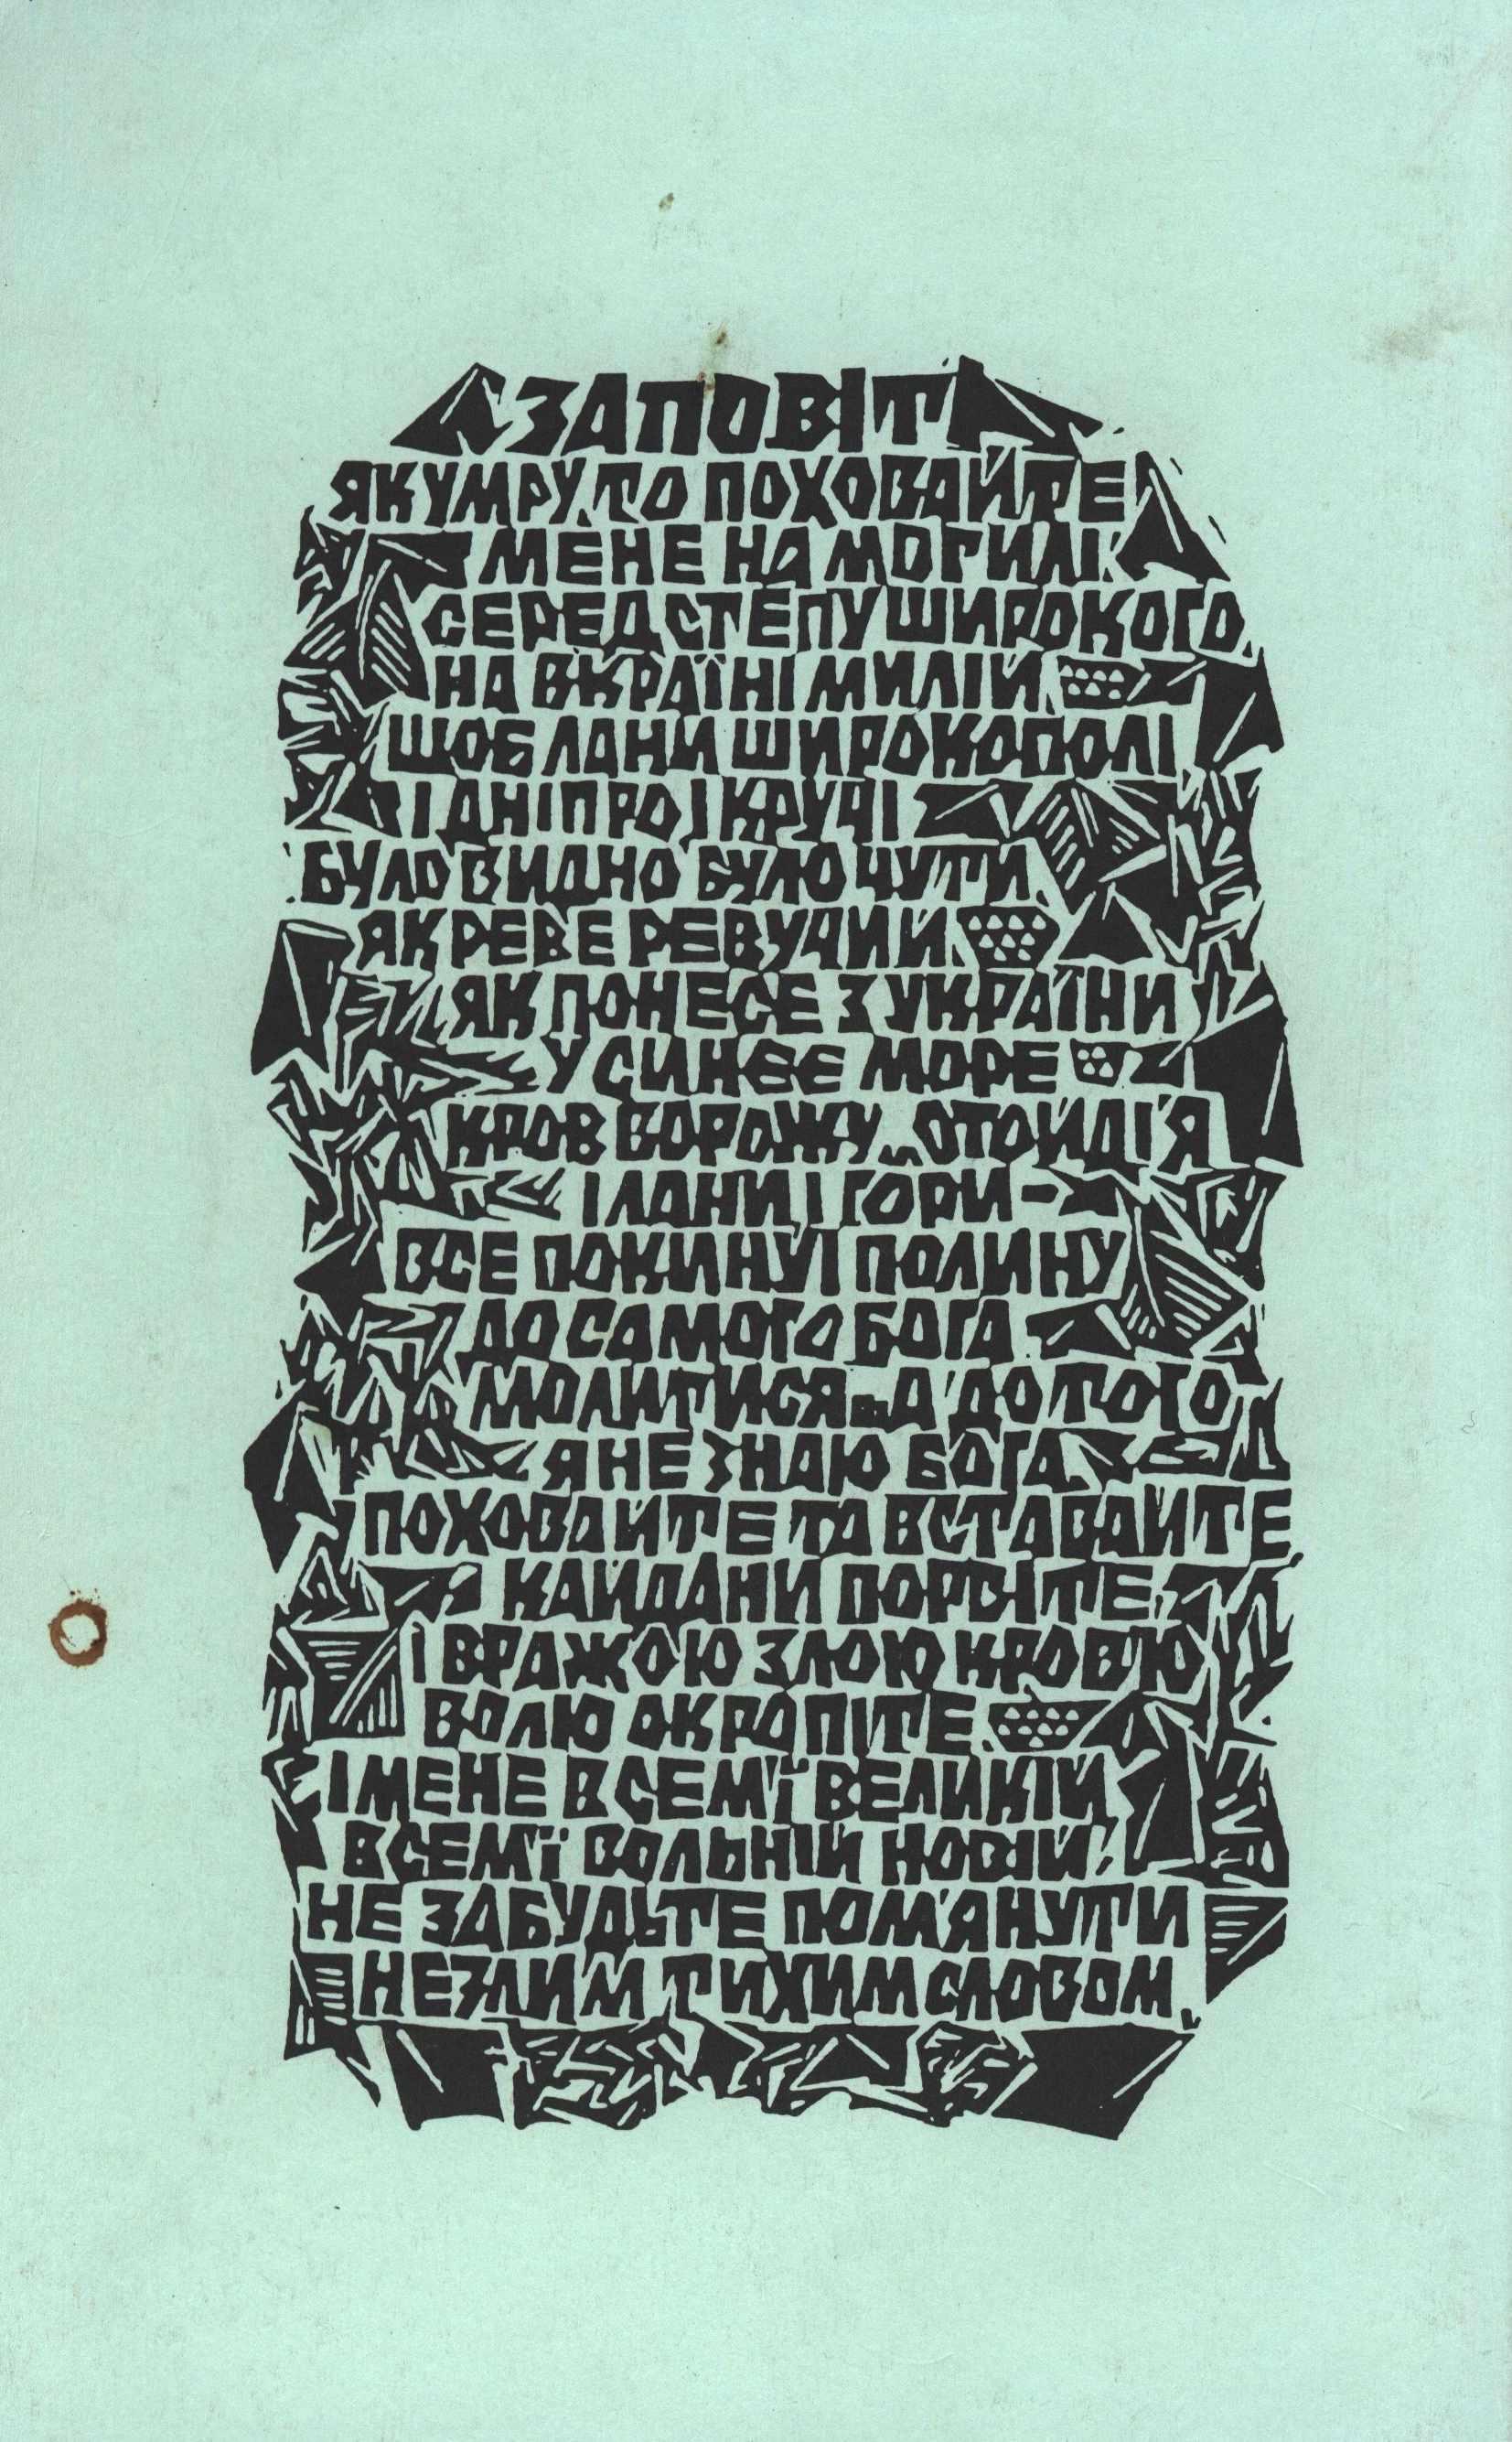 ЗАПОВІТ
ЯК УМРУ, ТО ПОХОВАЙТЕ
МЕНЕ НА МОГИЛІ,
СЕРЕД СТЕПУ ШИРОКОГО,
НА ВКРАЇНІ МИЛІЙ,
ЩОБ ЛАНИ ШИРОКОПОЛІ,
І ДНІПРО, І КРУЧІ
БУЛО ВИДНО, БУЛО ЧУТИ,
ЯК РЕВЕ РЕВУЧИЙ.
ЯК ПОНЕСЕ З УКРАЇНИ
У СИНЄЄ МОРЕ
КРОВ ВОРОЖУ... ОТОЙДІ Я
І ЛАНИ, І ГОРИ –
ВСЕ ПОКИНУ І ПОЛИНУ
ДО САМОГО БОГА
МОЛИТИСЯ... А ДО ТОГО
Я НЕ ЗНАЮ БОГА.
ПОХОВАЙТЕ ТА ВСТАВАЙТЕ,
КАЙДАНИ ПОРВІТЕ,
І ВРАЖОЮ ЗЛОЮ КРОВ'Ю
ВОЛЮ ОКРОПІТЕ.
І МЕНЕ В СЕМ'Ї ВЕЛИКІЙ,
В СЕМ'Ї ВОЛЬНІЙ, НОВІЙ,
НЕ ЗАБУДЬТЕ ПОМ'ЯНУТИ
НЕЗЛИМ ТИХИМ СЛОВОМ.